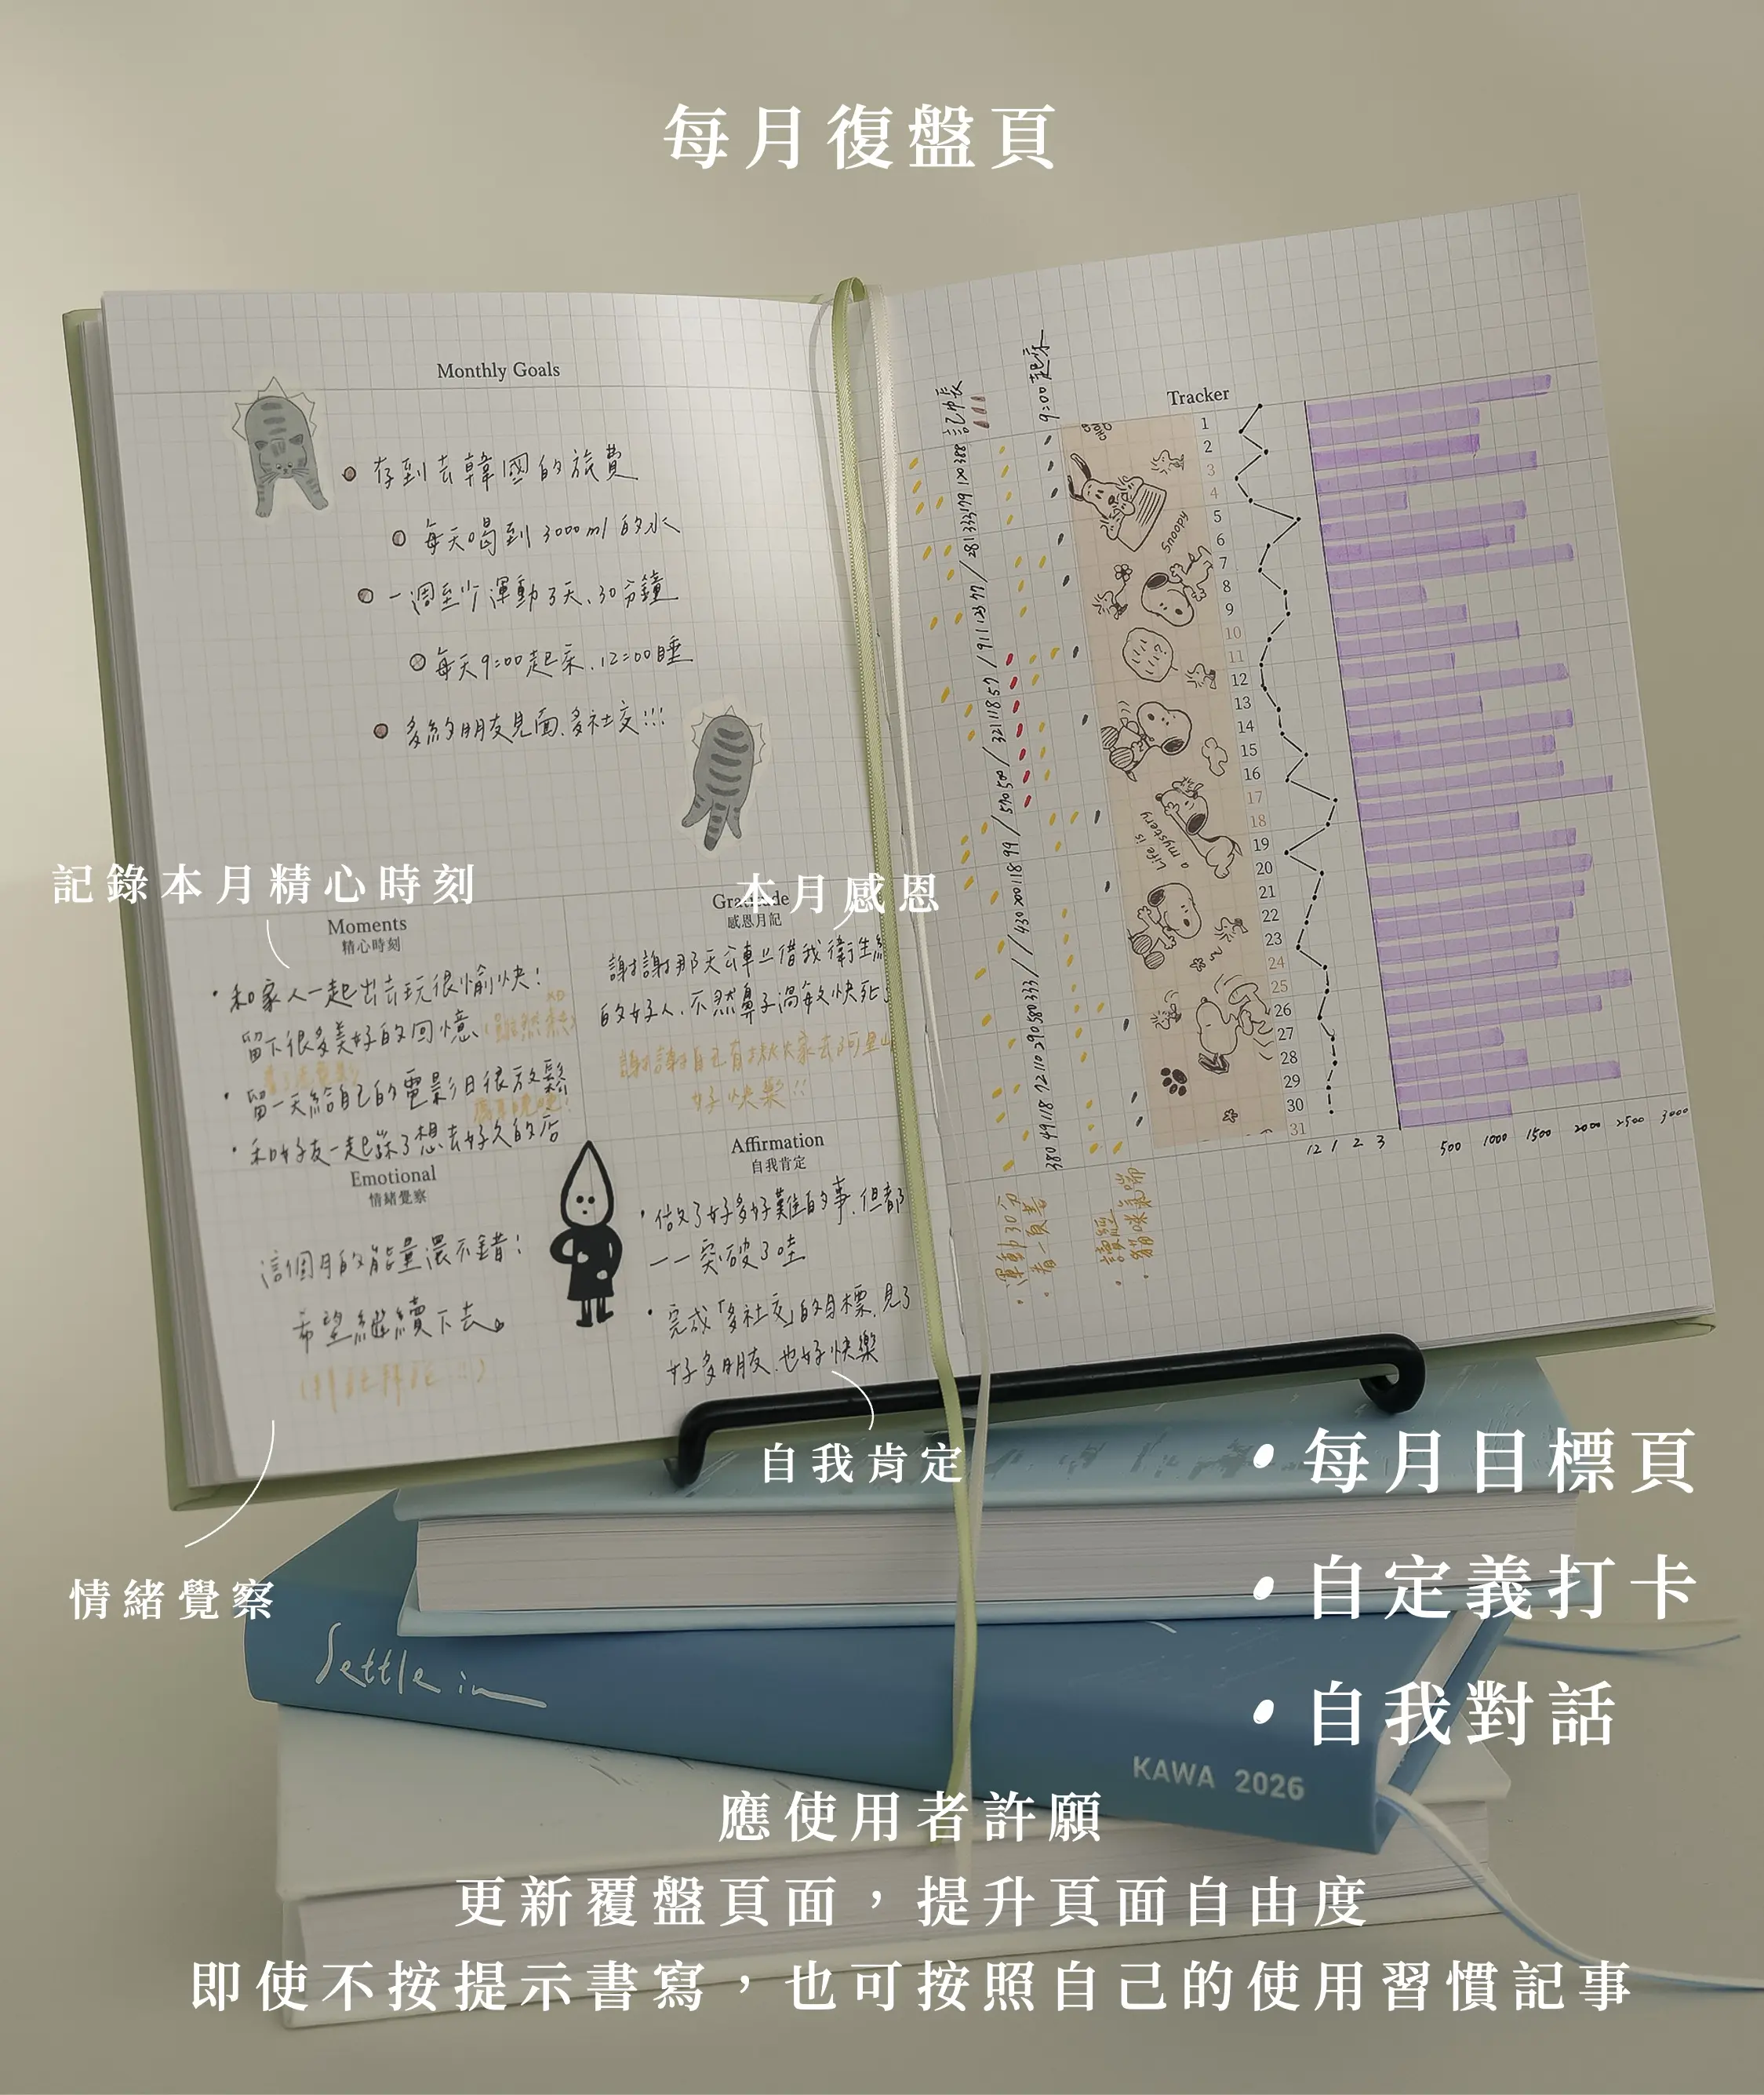 每月復盤頁
Monthly Goals
存到去韓國的旅費
每天喝到3000ml的水
一週至少運動3天、30分鐘
每天9:00起床、12:00睡
多約朋友見面、多社交!!!
記錄本月精心時刻
Moments
精心時刻
・和家人一起出去玩很愉快!
留下很多美好的回憶
・留一天給自己的電影日很放鬆
・和好友一起踩了想去好久的店
本月感恩
Gratitude
感恩月記
謝謝那天公車上借我衛生紙
的好人、不然鼻子過敏快死
謝謝自己有揪大家去阿里山
好快樂!!
Emotional
情緒覺察
這個月的能量還不錯!
希望繼續下去。
Affirmation
自我肯定
・做了好多好難的事、但都
一一突破了哇
・完成「多社交」的目標、見了
好多朋友、也好快樂
自我肯定
情緒覺察
記帳
9:00起床
Tracker
1
2
3
4
5
6
7
8
9
10
11
12
13
14
15
16
17
18
19
20
21
22
23
24
25
26
27
28
29
30
31
Snoopy
Life is
a mystery
12 1 2 3
500 1000 1500 2000 2500 3000
・運動30分
・看一頁書
・讀經
・每月目標頁
・自定義打卡
・自我對話
Settle in
KAWA 2026
應使用者許願
更新覆盤頁面，提升頁面自由度
即使不按提示書寫，也可按照自己的使用習慣記事